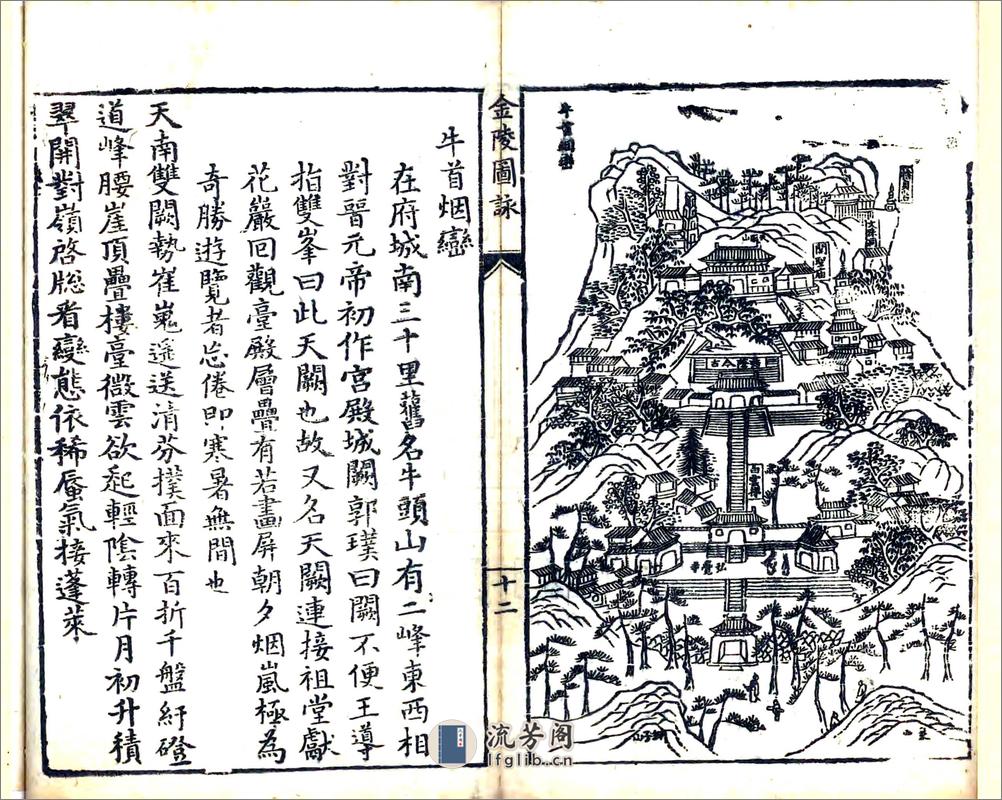 牛首烟巒
獅子山
弘覺寺
金陵圖詠
十二
牛首烟巒
在府城南三十里舊名牛頭山有二峰東西相
對晉元帝初作宮殿城闕郭璞曰闕不便王導
指雙峯曰此天闕也故又名天闕連接祖堂獻
花巖回觀臺殿層疊有若畫屏朝夕烟嵐極為
奇勝遊覽者忘倦即寒暑無間也
天南雙闕勢崔嵬遥送清芬撲面來百折千盤紆磴
道峰腰崖頂疊樓臺微雲欲起輕陰轉片月初升積
翠開對嶺啓牕看變態依稀蜃氣接蓬萊
流芳阁
lfglib.cn